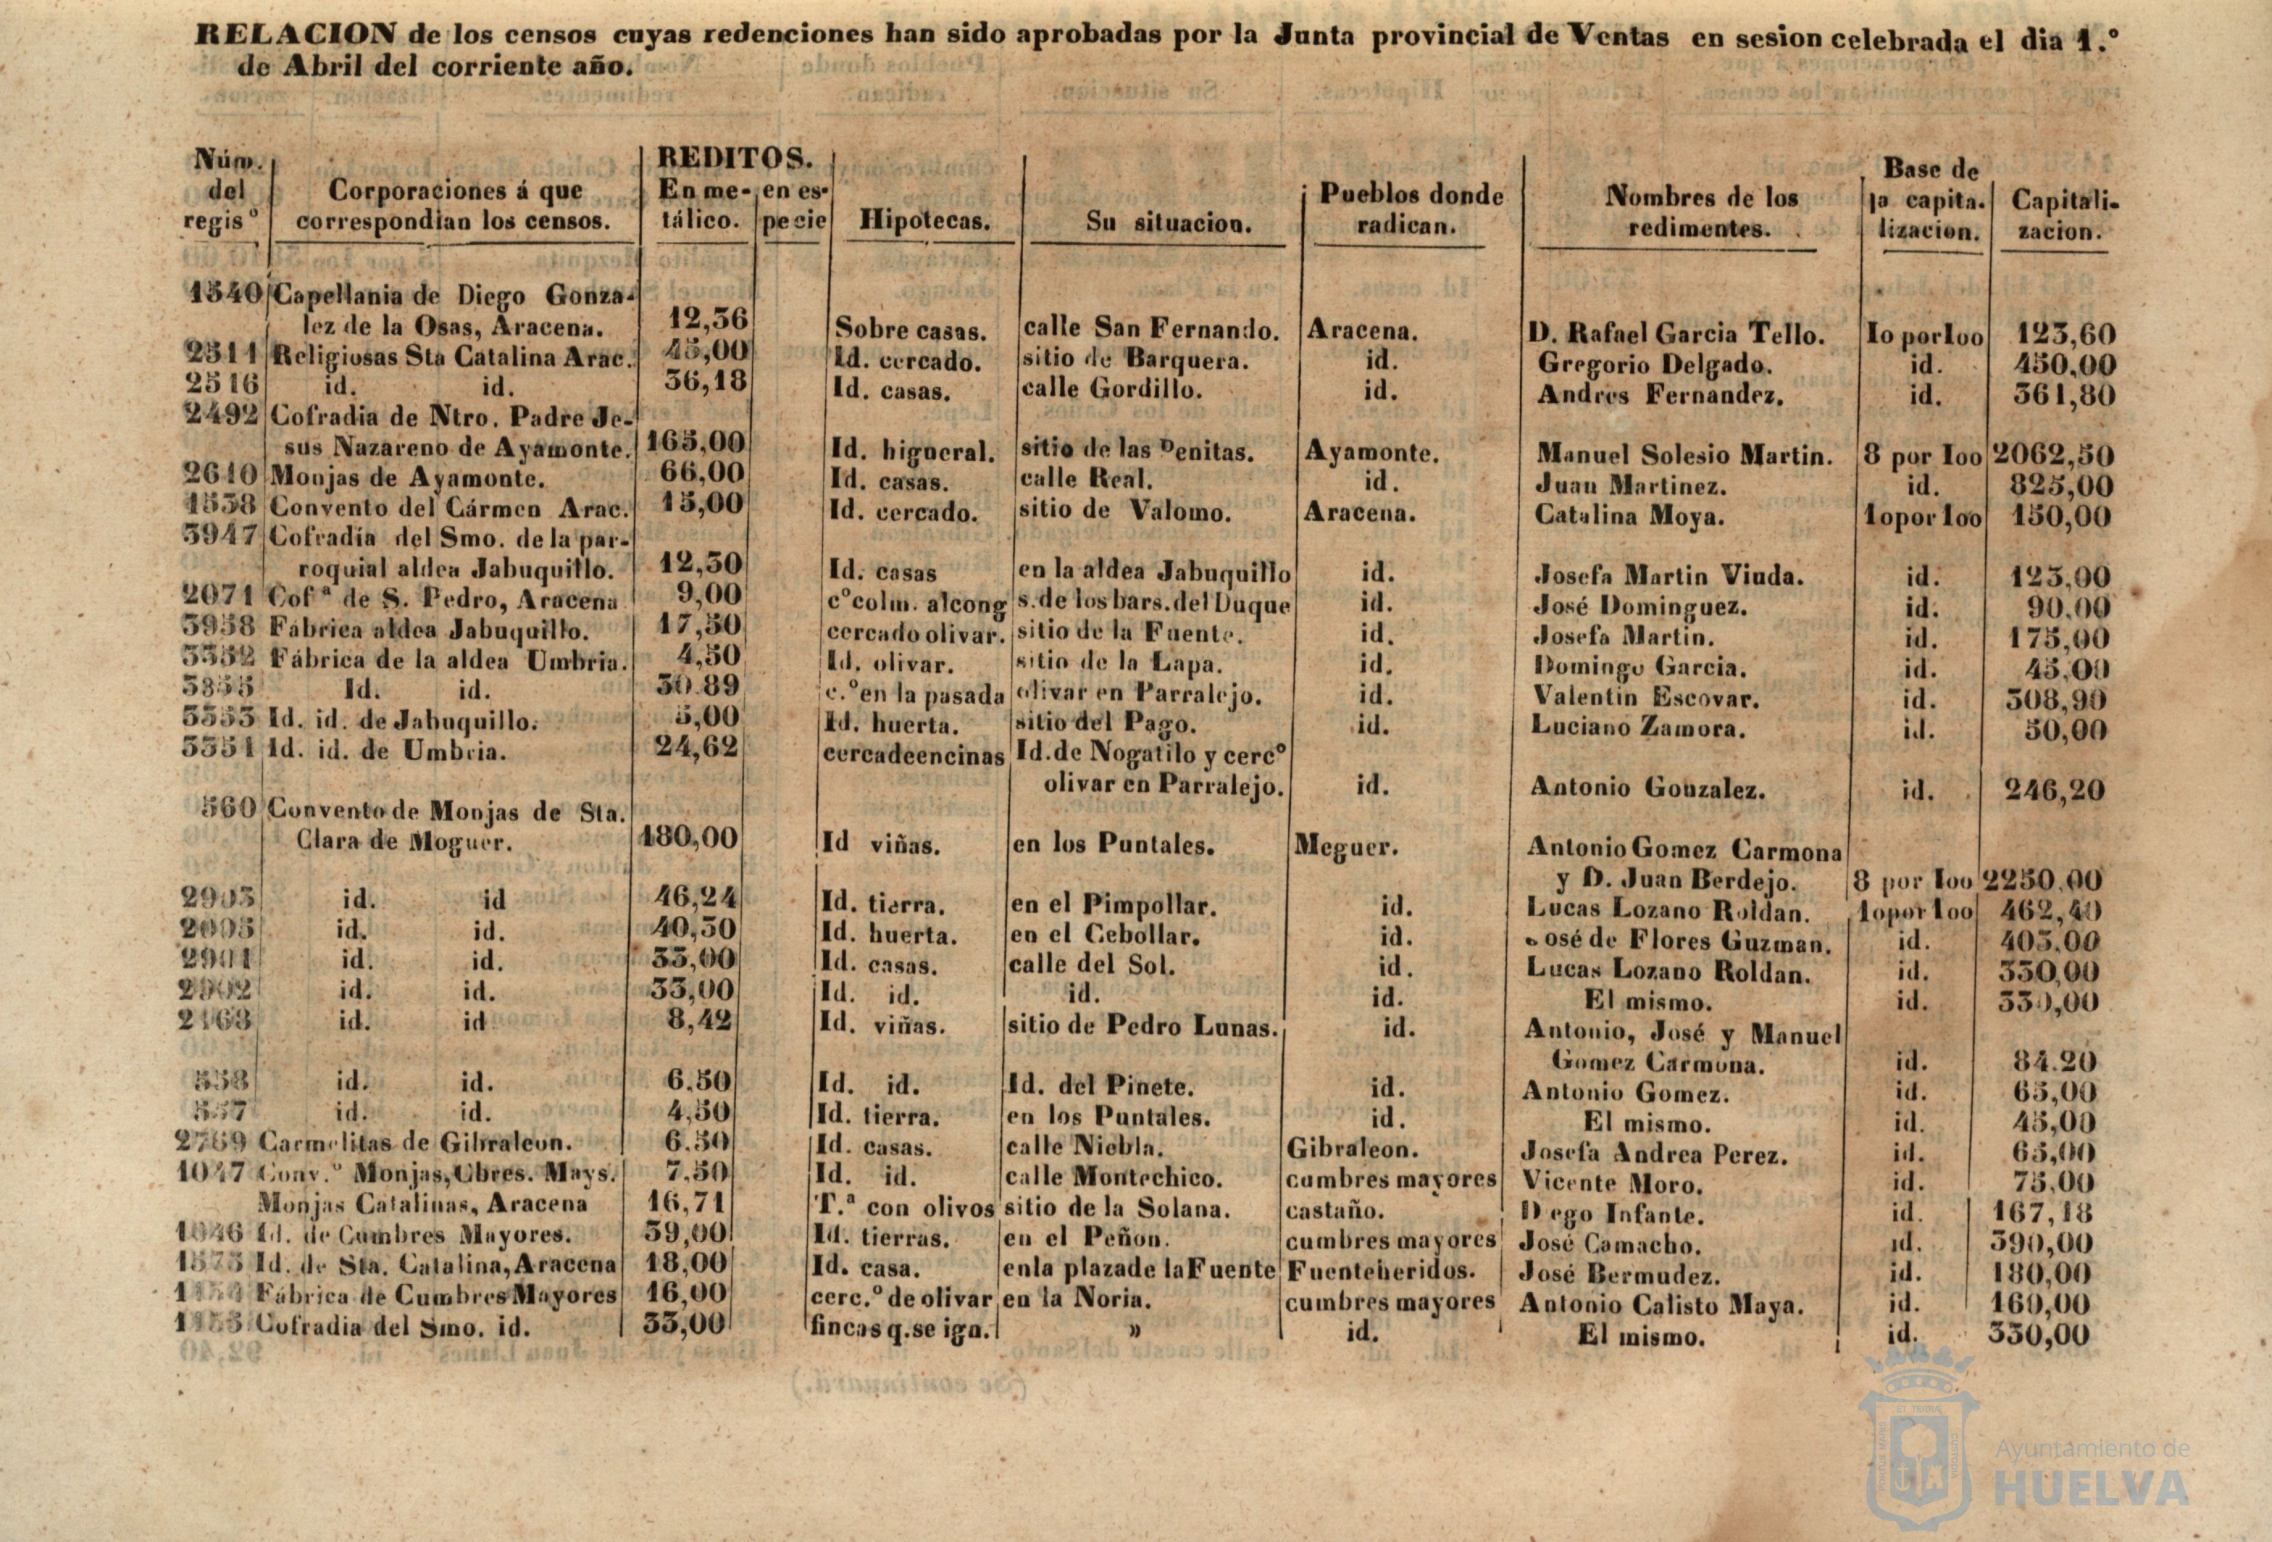 RELACION de los censos cuyas redenciones han sido aprobadas por la Junta provincial de Ventas en sesion celebrada el dia 1.º
de Abril del corriente año.
Núm. del regisº | Corporaciones á que correspondian los censos. | REDITOS. En me-tálico. | en es-pecie | Hipotecas. | Su situacion. | Pueblos donde radican. | Nombres de los redimentes. | Base de la capita-lizacion. | Capitali-zacion.
1340 Capellania de Diego Gonza-
lez de la Osas, Aracena. 12,36 Sobre casas. calle San Fernando. Aracena. D. Rafael Garcia Tello. Io por Ioo 123,60
2311 Religiosas Sta Catalina Arac. 45,00 Id. cercado. sitio de Barquera. id. Gregorio Delgado. id. 450,00
2316 id. id. 36,18 Id. casas. calle Gordillo. id. Andres Fernandez. id. 361,80
2492 Cofradia de Ntro. Padre Je-
sus Nazareno de Ayamonte. 165,00 Id. higueral. sitio de las Penitas. Ayamonte. Manuel Solesio Martin. 8 por Ioo 2062,50
2610 Monjas de Ayamonte. 66,00 Id. casas. calle Real. id. Juan Martinez. id. 825,00
1538 Convento del Cármen Arac. 15,00 Id. cercado. sitio de Valomo. Aracena. Catalina Moya. 1o por Ioo 150,00
3947 Cofradia del Smo. de la par-
roquial aldea Jabuquillo. 12,30 Id. casas en la aldea Jabuquillo id. Josefa Martin Viuda. id. 123,00
2071 Cofª de S. Pedro, Aracena 9,00 cº colm. alcong s. de los bars. del Duque id. José Dominguez. id. 90.00
3938 Fábrica aldea Jabuquillo. 17,50 cercado olivar. sitio de la Fuente. id. Josefa Martin. id. 175,00
3352 Fábrica de la aldea Umbria. 4,50 Id. olivar. sitio de la Lapa. id. Domingo Garcia. id. 45,00
Id. id. 30.89 c.º en la pasada olivar en Parralejo. id. Valentin Escovar. id. 308,90
3353 Id. id. de Jabuquillo. 5,00 Id. huerta. sitio del Pago. id. Luciano Zamora. id. 50,00
3351 Id. id. de Umbria. 24,62 cercadeencinas Id. de Nogatilo y cercº
olivar en Parralejo. id. Antonio Gonzalez. id. 246,20
560 Convento de Monjas de Sta.
Clara de Moguer. 180,00 Id viñas. en los Puntales. Meguer. Antonio Gomez Carmona
y D. Juan Berdejo. 8 por Ioo 2250.00
2903 id. id 46,24 Id. tierra. en el Pimpollar. id. Lucas Lozano Roldan. 1o por 1oo 462,40
id. id. 40,50 Id. huerta. en el Cebollar. id. José de Flores Guzman. id. 405,00
2901 id. id. 33,00 Id. casas. calle del Sol. id. Lucas Lozano Roldan. id. 330,00
2902 id. id. 33,00 Id. id. id. id. El mismo. id. 330,00
2163 id. id 8,42 Id. viñas. sitio de Pedro Lunas. id. Antonio, José y Manuel
Gomez Carmona. id. 84.20
558 id. id. 6.50 Id. id. Id. del Pinete. id. Antonio Gomez. id. 65,00
557 id. id. 4,50 Id. tierra. en los Puntales. id. El mismo. id. 45,00
2769 Carmelitas de Gibraleon. 6.50 Id. casas. calle Niebla. Gibraleon. Josefa Andrea Perez. id. 65,00
1047 Conv.º Monjas, Cbres. Mays. 7.50 Id. id. calle Montechico. cumbres mayores Vicente Moro. id. 75,00
Monjas Catalinas, Aracena 16,71 T.ª con olivos sitio de la Solana. castaño. Diego Infante. id. 167,18
1046 Id. de Cumbres Mayores. 39,00 Id. tierras. en el Peñon. cumbres mayores José Camacho. id. 390,00
1573 Id. de Sta. Catalina, Aracena 18,00 Id. casa. en la plaza de la Fuente Fuenteheridos. José Bermudez. id. 180,00
Fábrica de Cumbres Mayores 16,00 cerc.º de olivar en la Noria. cumbres mayores Antonio Calisto Maya. id. 160,00
Cofradia del Smo. id. 33,00 fincas q. se ign. » id. El mismo. id. 330,00
Ayuntamiento de
HUELVA